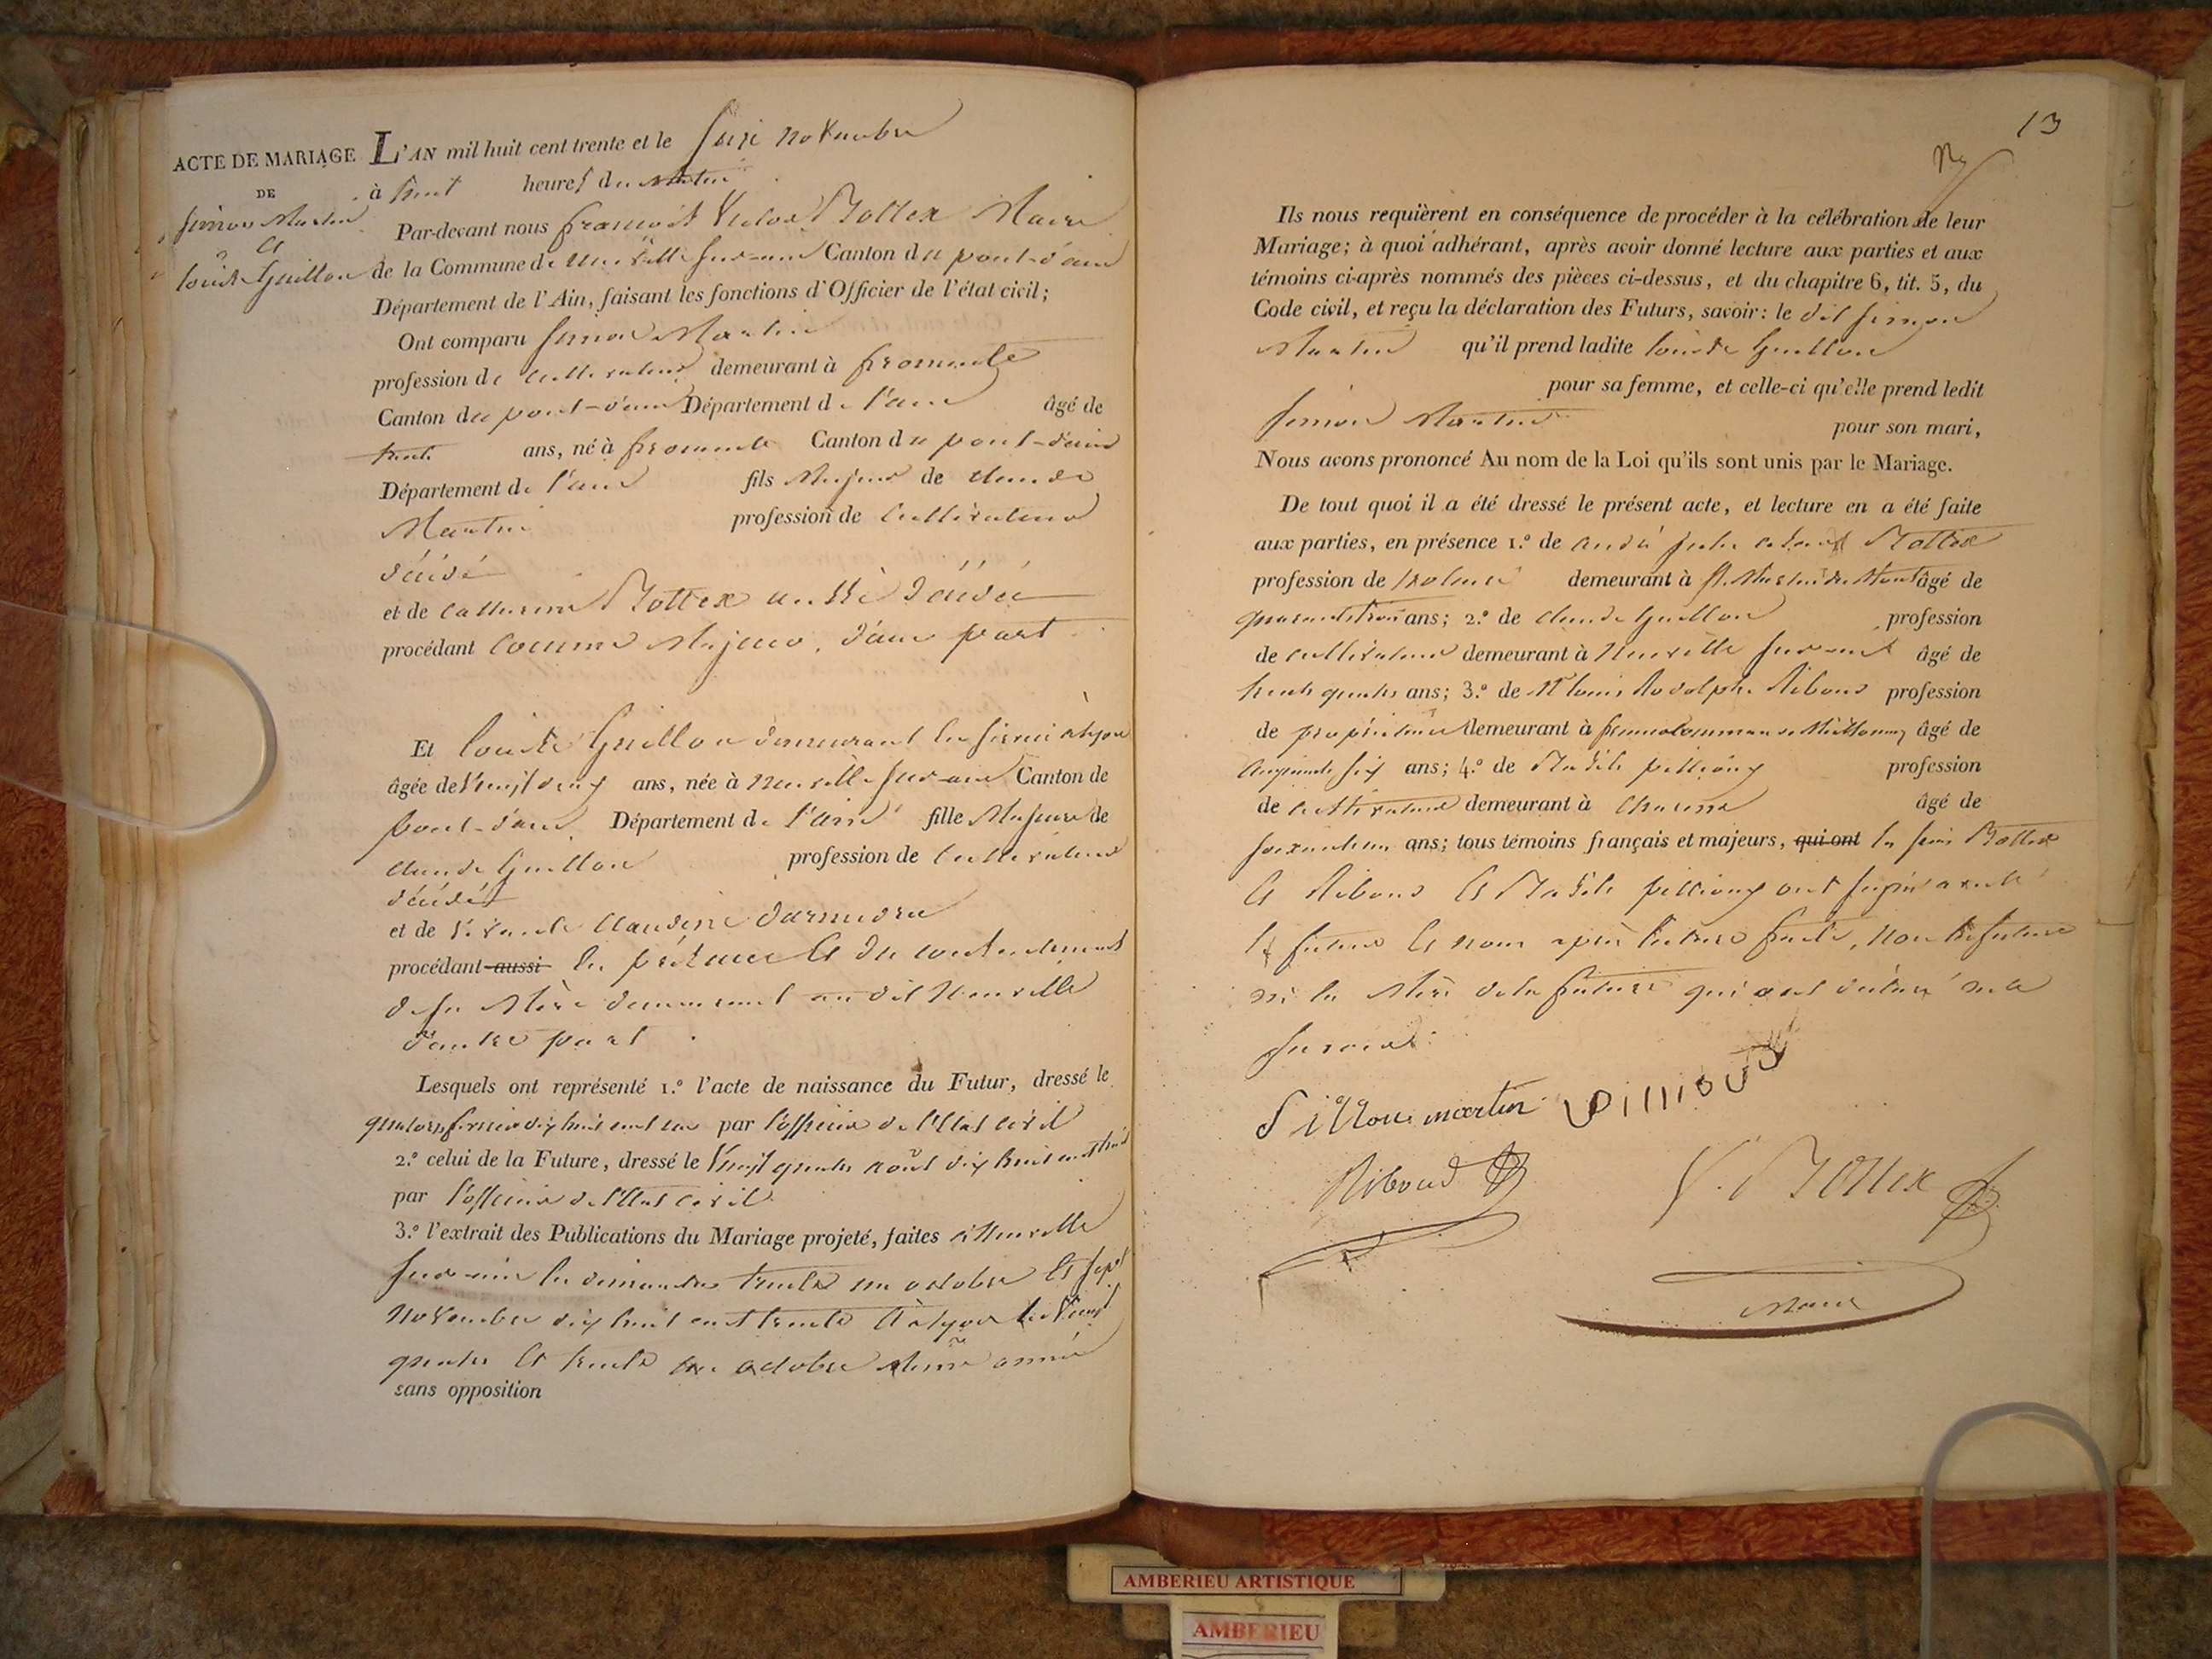 ACTE DE MARIAGE
DE
Simon Martin
et
Louise Guillon
L'AN mil huit cent trente et le seize novembre
à huit heures du matin
Par-devant nous françois Victor Bottex Maire
de la Commune de neuville sur-ain Canton du pont-d'ain
Département de l'Ain, faisant les fonctions d'Officier de l'état civil;
Ont comparu Simon Martin
profession de cultivateur demeurant à fromente
Canton du pont-d'ain Département de l'ain âgé de
trente ans, né à fromente Canton du pont-d'ain
Département de l'ain fils Majeur de claude
Martin profession de cultivateur
décédé
et de catherine Bottex aussi décédée
procédant comme Majeur, d'une part
Et Louise Guillon demeurant en service à lyon
âgée de vingt sept ans, née à neuville sur-ain Canton de
pont-d'ain Département de l'ain fille Majeure de
claude Guillon profession de cultivateur
décédé
et de vivante claudine
procédant aussi en présence et du consentement
de sa Mère demeurant au dit Neuville
d'autre part
Lesquels ont représenté 1.º l'acte de naissance du Futur, dressé le
dix huit cent un par l'officier de l'Etat civil
2.º celui de la Future, dressé le Vingt quatre août dix huit cent trois
par l'officier de l'Etat civil
3.º l'extrait des Publications du Mariage projeté, faites à Neuville
sur-ain les dimanches trente un octobre et sept
novembre dix huit cent trente et à lyon les Vingt
quatre et trente un octobre même année
sans opposition
13
Ils nous requièrent en conséquence de procéder à la célébration de leur
Mariage; à quoi adhérant, après avoir donné lecture aux parties et aux
témoins ci-après nommés des pièces ci-dessus, et du chapitre 6, tit. 5, du
Code civil, et reçu la déclaration des Futurs, savoir: le dit Simon
Martin qu'il prend ladite louise Guillon
pour sa femme, et celle-ci qu'elle prend ledit
Simon Martin pour son mari,
Nous avons prononcé Au nom de la Loi qu'ils sont unis par le Mariage.
De tout quoi il a été dressé le présent acte, et lecture en a été faite
aux parties, en présence 1.º de andré Bottex
profession de demeurant à St. Martin du Mont âgé de
quarante trois ans; 2.º de claude Guillon profession
de cultivateur demeurant à Neuville sur-ain âgé de
trente quatre ans; 3.º de Mr louis Rodolphe Riboud profession
de propriétaire demeurant à âgé de
cinquante six ans; 4.º de pillioux profession
de cultivateur demeurant à âgé de
ans; tous témoins français et majeurs, qui ont Bottex
et Riboud et pillioux ont signé avec
le futur et nous après lecture faite, non la future
ni la Mère de la future qui ont déclaré ne
savoir.
Simon martin pilliouu
Riboud V. Bottex
Maire
AMBERIEU ARTISTIQUE
AMBERIEU